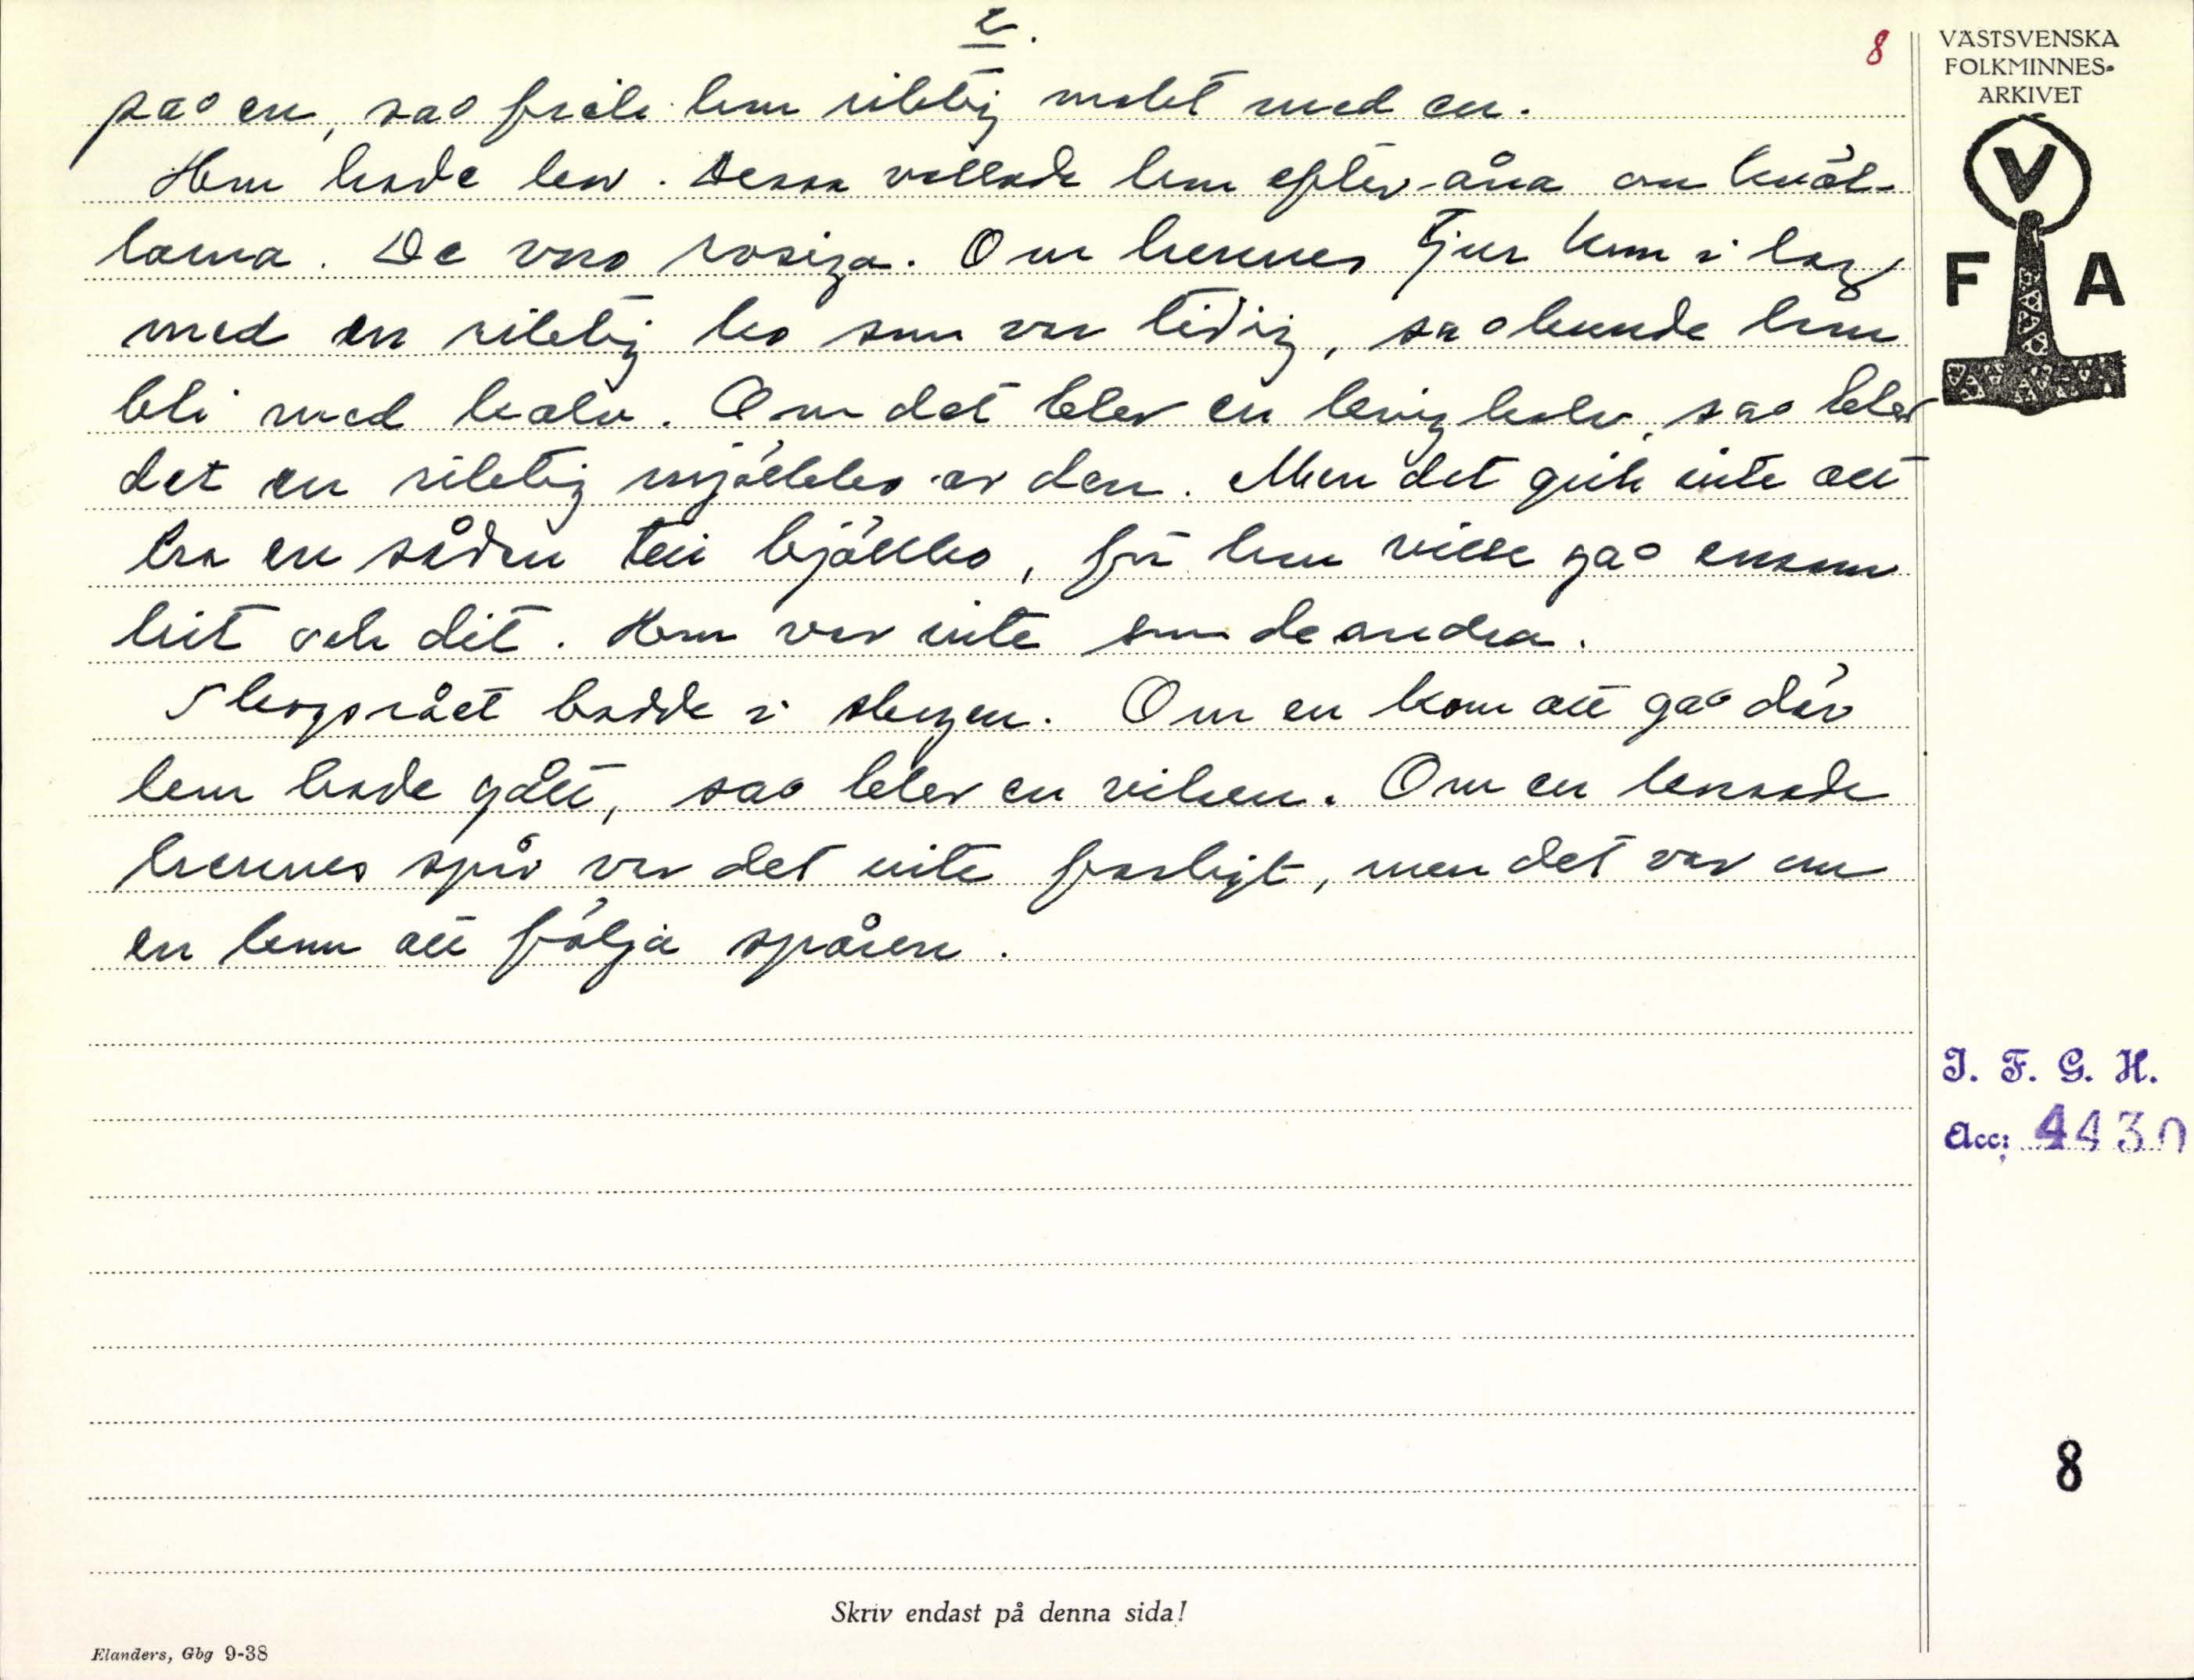 2.
8
pao en, sao fick hon riktig makt med en.
Hon hade kor. Dessa vallade hon efter åna om kväl-
larna. De voro rosiga. Om hennes tjur kom i lag
med en riktig ko som var tidig, sao kunde hon
bli med kalv. Om det blev en kvigkalv, sao blev
det en riktig mjölkko av den. Men det gick inte att
ha en sådan till bjällko, för hon ville gao ensam
hit och dit. Hon var inte som de andra.
Skogsrået bodde i skogen. Om en kom att gao där
hon hade gått, sao blev en vilsen. Om en korsade
hennes spår var det inte farligt, men det var om
en kom att följa spåren.
VÄSTSVENSKA
FOLKMINNES-
ARKIVET
V
F A
I. F. G. H.
Acc: 4430
8
Skriv endast på denna sida!
Elanders, Gbg 9-38